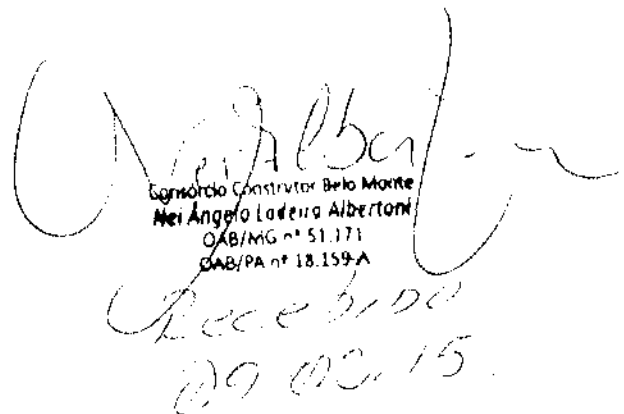 Nei Alber
Consórcio Construtor Belo Monte
Nei Ângelo Ladeira Albertoni
OAB/MG nº 51.171
OAB/PA nº 18.159-A
Recebido
09.02.15.